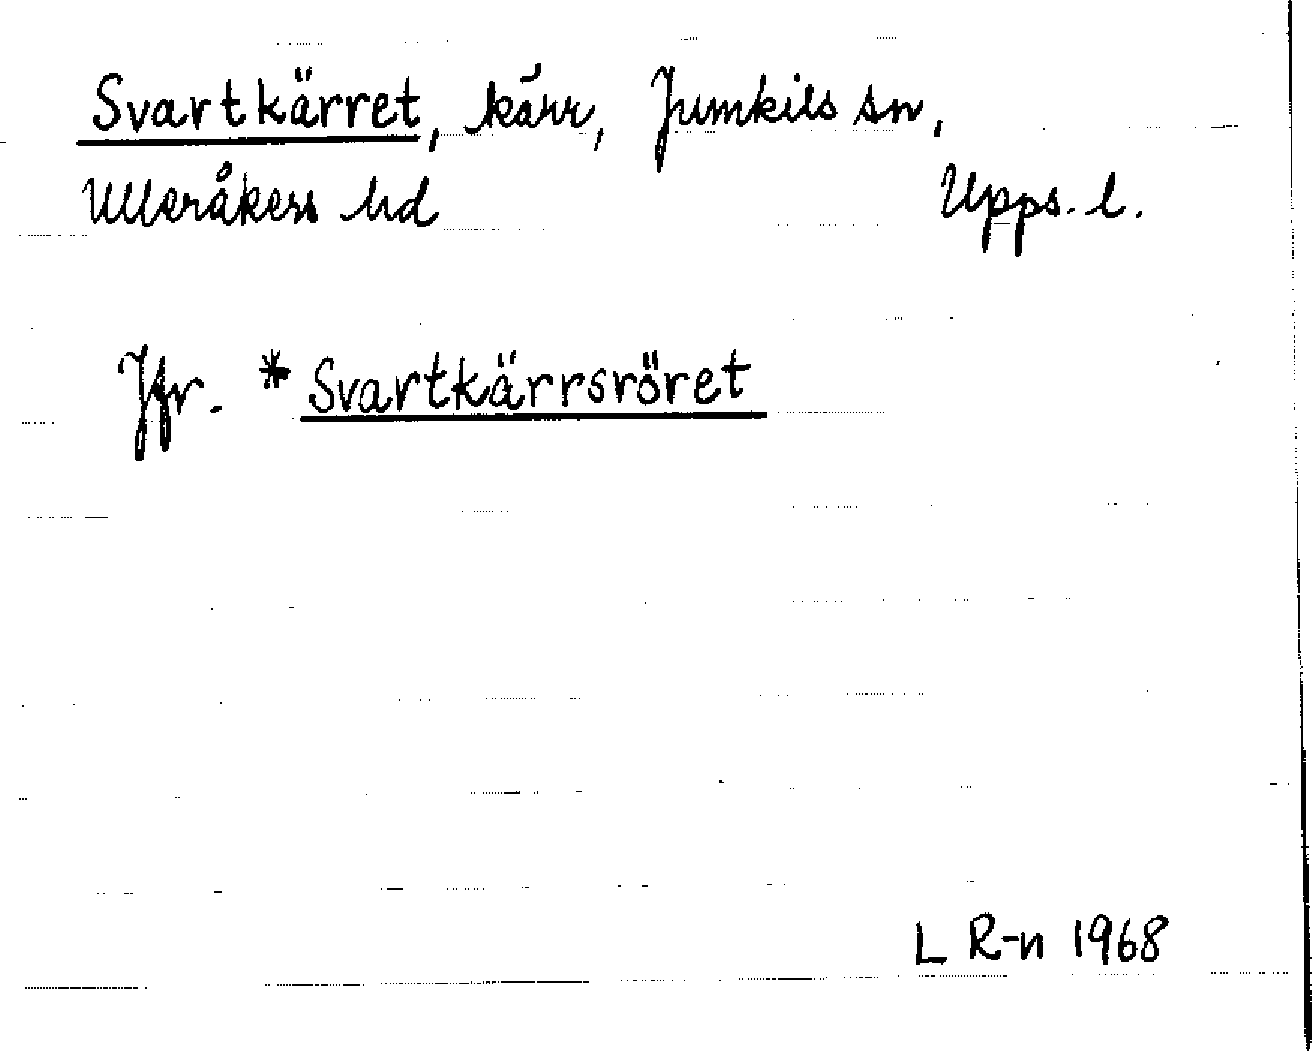 Svartkärret, kärr, Jumkils sn,
Ulleråkers hd Upps. l.
Jfr. *Svartkärrsröret
L R-n 1968